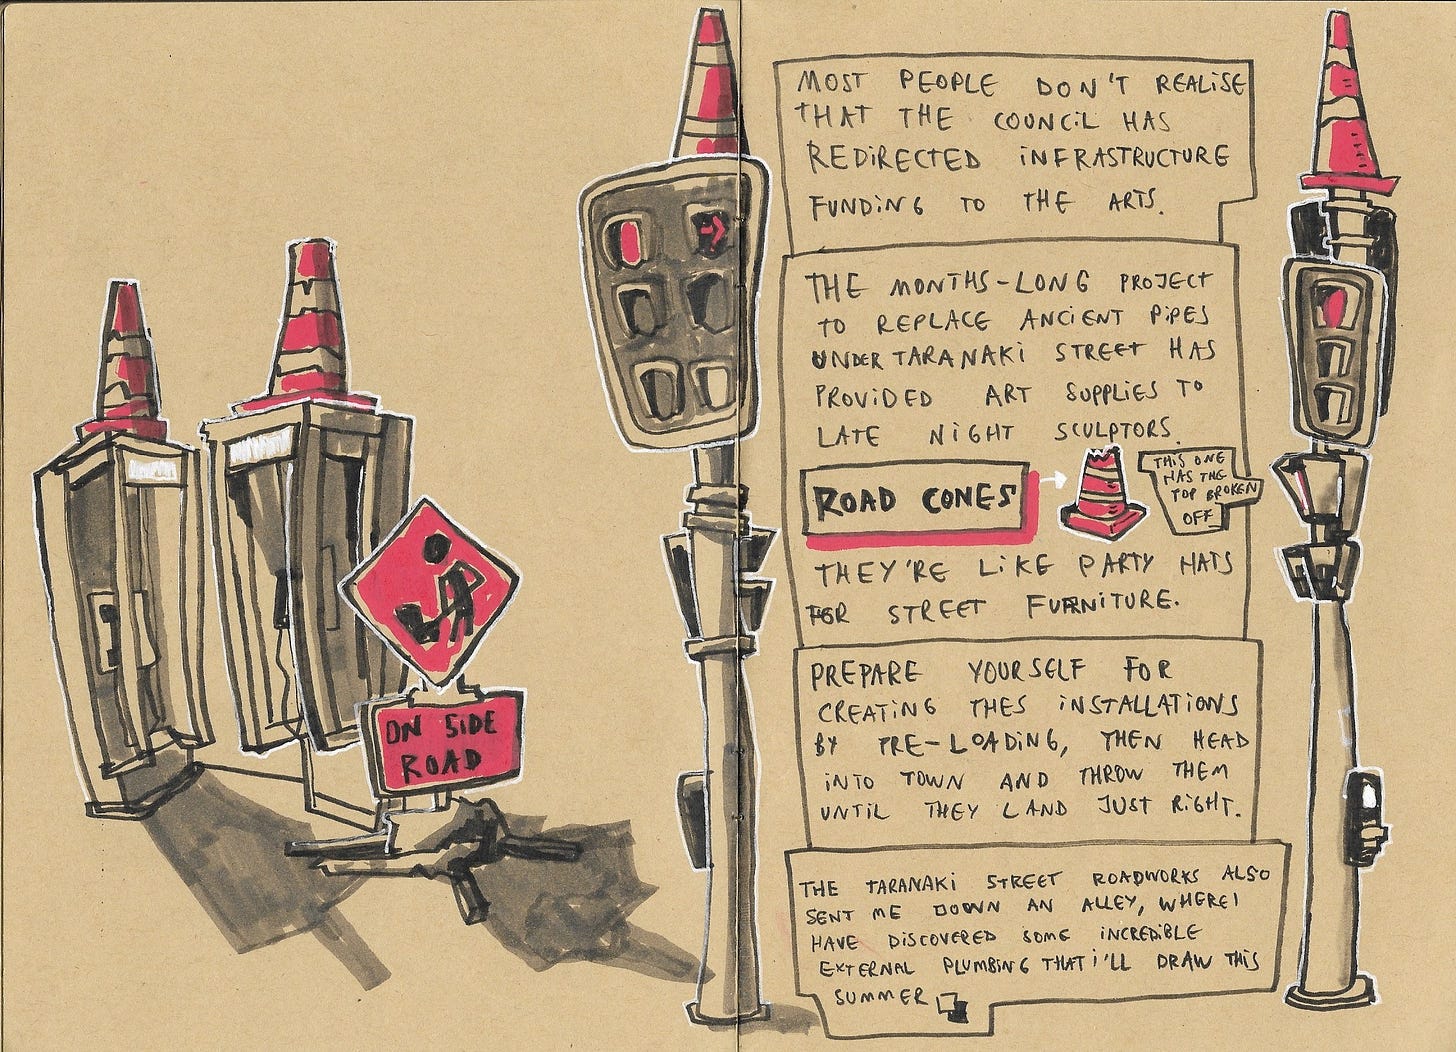 MOST PEOPLE DON'T REALISE
THAT THE COUNCIL HAS
REDIRECTED INFRASTRUCTURE
FUNDING TO THE ARTS.
THE MONTHS-LONG PROJECT
TO REPLACE ANCIENT PIPES
UNDER TARANAKI STREET HAS
PROVIDED ART SUPPLIES TO
LATE NIGHT SCULPTORS.
ROAD CONES
THIS ONE
HAS THE
TOP BROKEN
OFF
THEY'RE LIKE PARTY HATS
FOR STREET FURNITURE.
PREPARE YOURSELF FOR
CREATING THES INSTALLATIONS
BY PRE-LOADING, THEN HEAD
INTO TOWN AND THROW THEM
UNTIL THEY LAND JUST RIGHT.
THE TARANAKI STREET ROADWORKS ALSO
SENT ME DOWN AN ALLEY, WHERE I
HAVE DISCOVERED SOME INCREDIBLE
EXTERNAL PLUMBING THAT I'LL DRAW THIS
SUMMER
ON SIDE
ROAD